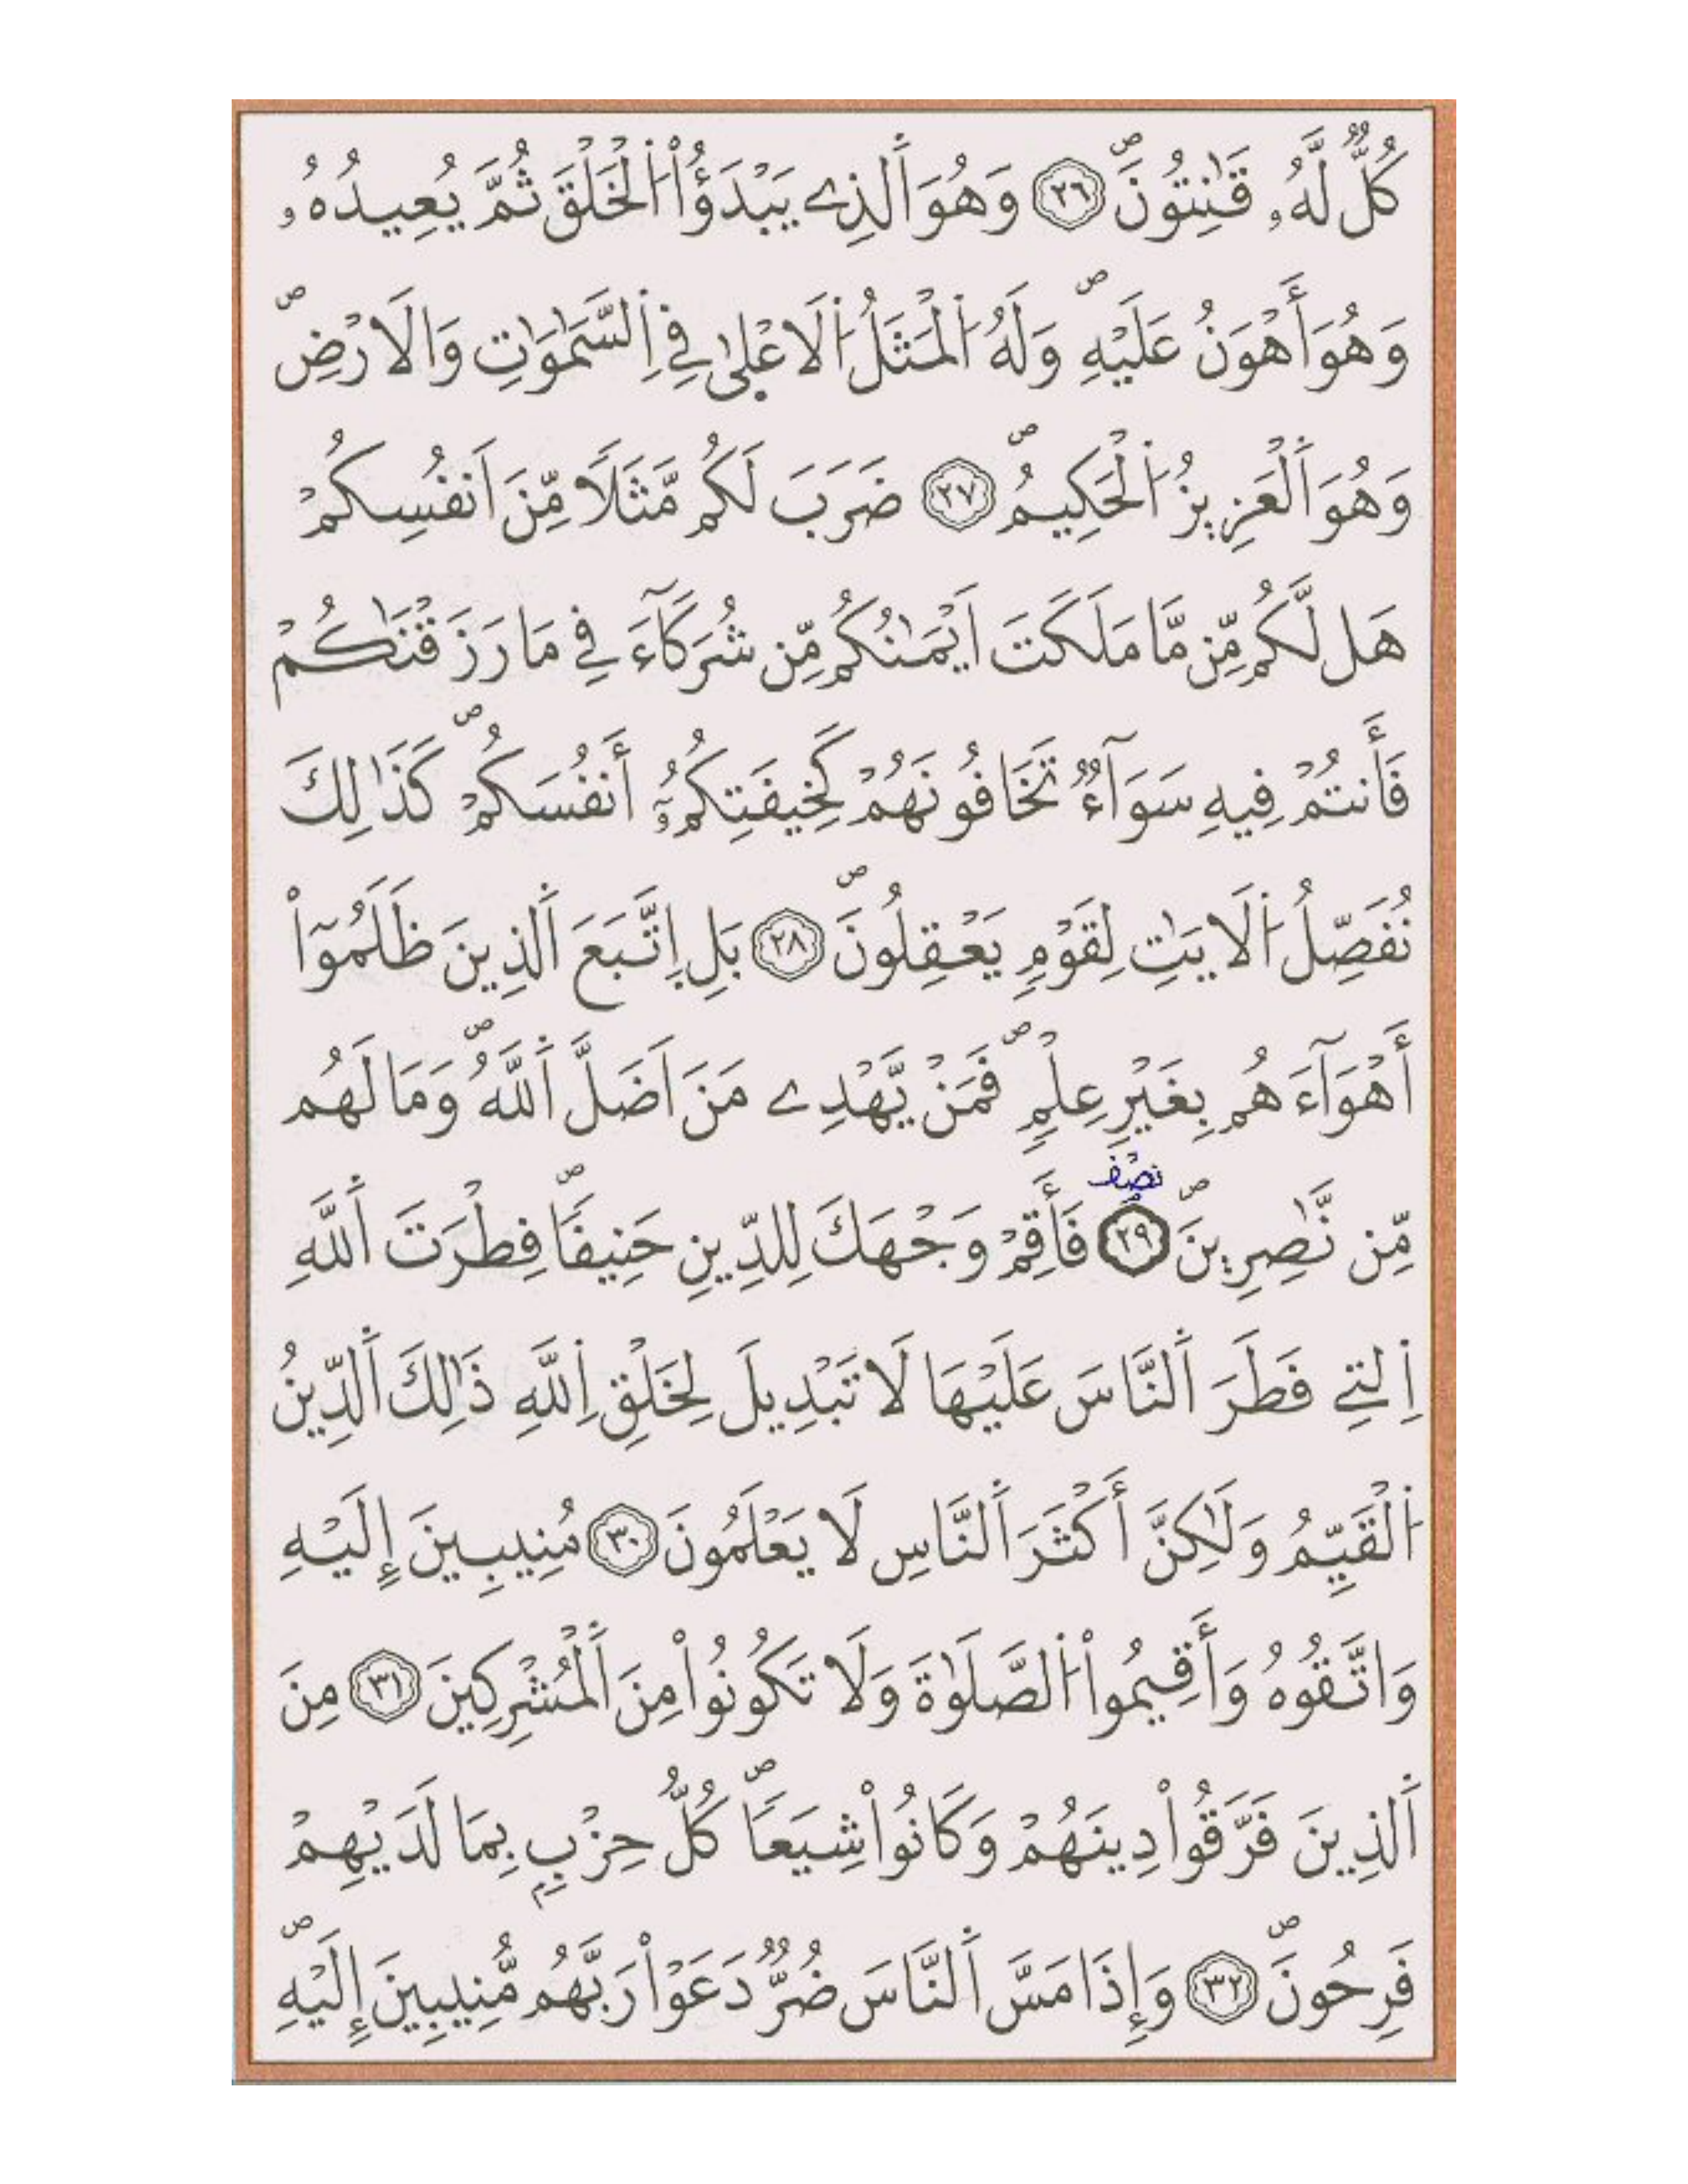 كُلّٞ لَّهُۥ قَٰنِتُونَۖ ٢٦ وَهُوَ اَ۬لذِے يَبْدَؤُاْ اُ۬لْخَلْقَ ثُمَّ يُعِيدُهُۥ
وَهُوَ أَهْوَنُ عَلَيْهِۖ وَلَهُ اُ۬لْمَثَلُ اُ۬لَاعْلۭيٰ فِے اِ۬لسَّمَٰوَٰتِ وَالَارْضِۖ
وَهُوَ اَ۬لْعَزِيزُ اُ۬لْحَكِيمُۖ ٢٧ ضَرَبَ لَكُم مَّثَلاٗ مِّنَ اَنفُسِكُمْ
هَل لَّكُم مِّن مَّا مَلَكَتَ اَيْمَٰنُكُم مِّن شُرَكَآءَ فِے مَا رَزَقْنَٰكُمْ
فَأَنتُمْ فِيهِ سَوَآءٞ تَخَافُونَهُمْ كَخِيفَتِكُمُۥٓ أَنفُسَكُمْۖ كَذَٰلِكَ
نُفَصِّلُ اُ۬لَايَٰتِ لِقَوْمٖ يَعْقِلُونَۖ ٢٨ بَلِ اِ۪تَّبَعَ اَ۬لذِينَ ظَلَمُوٓاْ
أَهْوَآءَهُم بِغَيْرِ عِلْمٖۖ فَمَنْ يَّهْدِے مَنَ اَضَلَّ اَ۬للَّهُۖ وَمَا لَهُم
نصف
مِّن نَّٰصِرِينَۖ ٢٩ فَأَقِمْ وَجْهَكَ لِلدِّينِ حَنِيفاٗۖ فِطْرَتَ اَ۬للَّهِ
اِ۬لتِے فَطَرَ اَ۬لنَّاسَ عَلَيْهَا لَا تَبْدِيلَ لِخَلْقِ اِ۬للَّهِ ذَٰلِكَ اَ۬لدِّينُ
اُ۬لْقَيِّمُ وَلَٰكِنَّ أَكْثَرَ اَ۬لنَّاسِ لَا يَعْلَمُونَ ٣٠ مُنِيبِينَ إِلَيْهِ
وَاتَّقُوهُ وَأَقِيمُواْ اُ۬لصَّلَوٰةَ وَلَا تَكُونُواْ مِنَ اَ۬لْمُشْرِكِينَ ٣١ مِنَ
اَ۬لذِينَ فَرَّقُواْ دِينَهُمْ وَكَانُواْ شِيَعاٗۖ كُلُّ حِزْبِۢ بِمَا لَدَيْهِمْ
فَرِحُونَۖ ٣٢ وَإِذَا مَسَّ اَ۬لنَّاسَ ضُرّٞ دَعَوْاْ رَبَّهُم مُّنِيبِينَ إِلَيْهِۖ